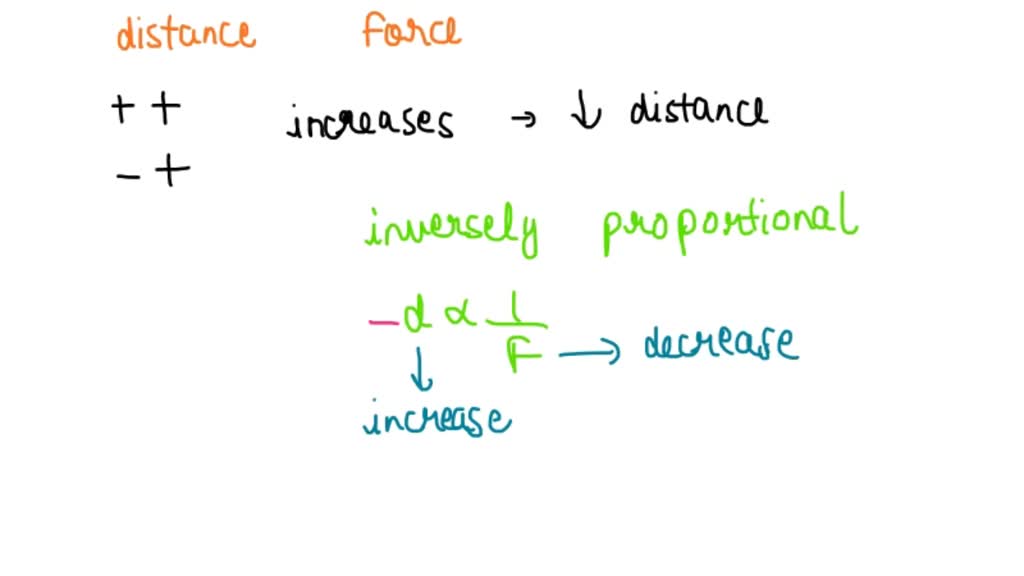 distance force
+ + increases → ↓ distance
- +
inversely proportional
- d ∝ 1/F → decrease
↓
increase